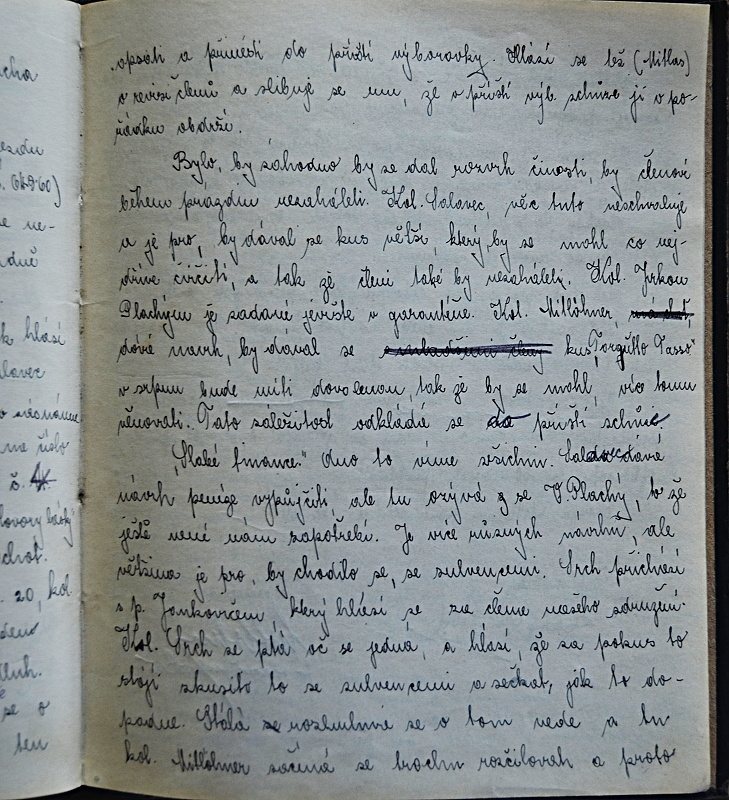 cha
esidu
ne ne-
dně
k hlásí
lavec
na číslo
č.
chot.
20, kol.
se o
ten
opsati a přinésti do příští výborovky. Hlásí se též (Mitlas)
o revisi členů a slibuje se mu, že v příští výb. schůze ji v po-
řádku obdrží.
Bylo, by záhodno by se dal rozvrh činosti, by členové
během prázdnin nezaháleli. Kol. Salavec, věc tuto neschvaluje
a je pro, by dával se kus větší, který by se mohl co nej-
dříve cvičiti, a tak zě členi také by nezaháleli. Kol. Jirkou
Plachým je žádané jeviště v garanténe. Kol. Mitlöhner,
dává navrh, by dával se kus „Torquatto Tasso"
v srpnu bude míti dovolenou, tak zě by se mohl, více tomu
věnovati. Tato záležitost odkládá se na příští schůzi.
„Slabé finance." Ano to víme všichni. Salavec dává
návrh peníze vypůjčiti, ale tu ozývá z se V. Plachý, to že
ještě není nám zapotřebí. Je více různých návrhů, ale
většina je pro, by chodilo se, se subvencemi. Srch přichází
s p. Jankovičem, který hlásí se za člena našeho sdružení.
Kol. Srch se ptá oč se jedná, a hlásí, žě za pokus to
stojí zkusiti to se subvencemi a sečkat, jak to do-
padne. Stálá se rozmluva se o tom vede a tu
kol. Mitlöhner začíná se trochu rozčilovati a proto